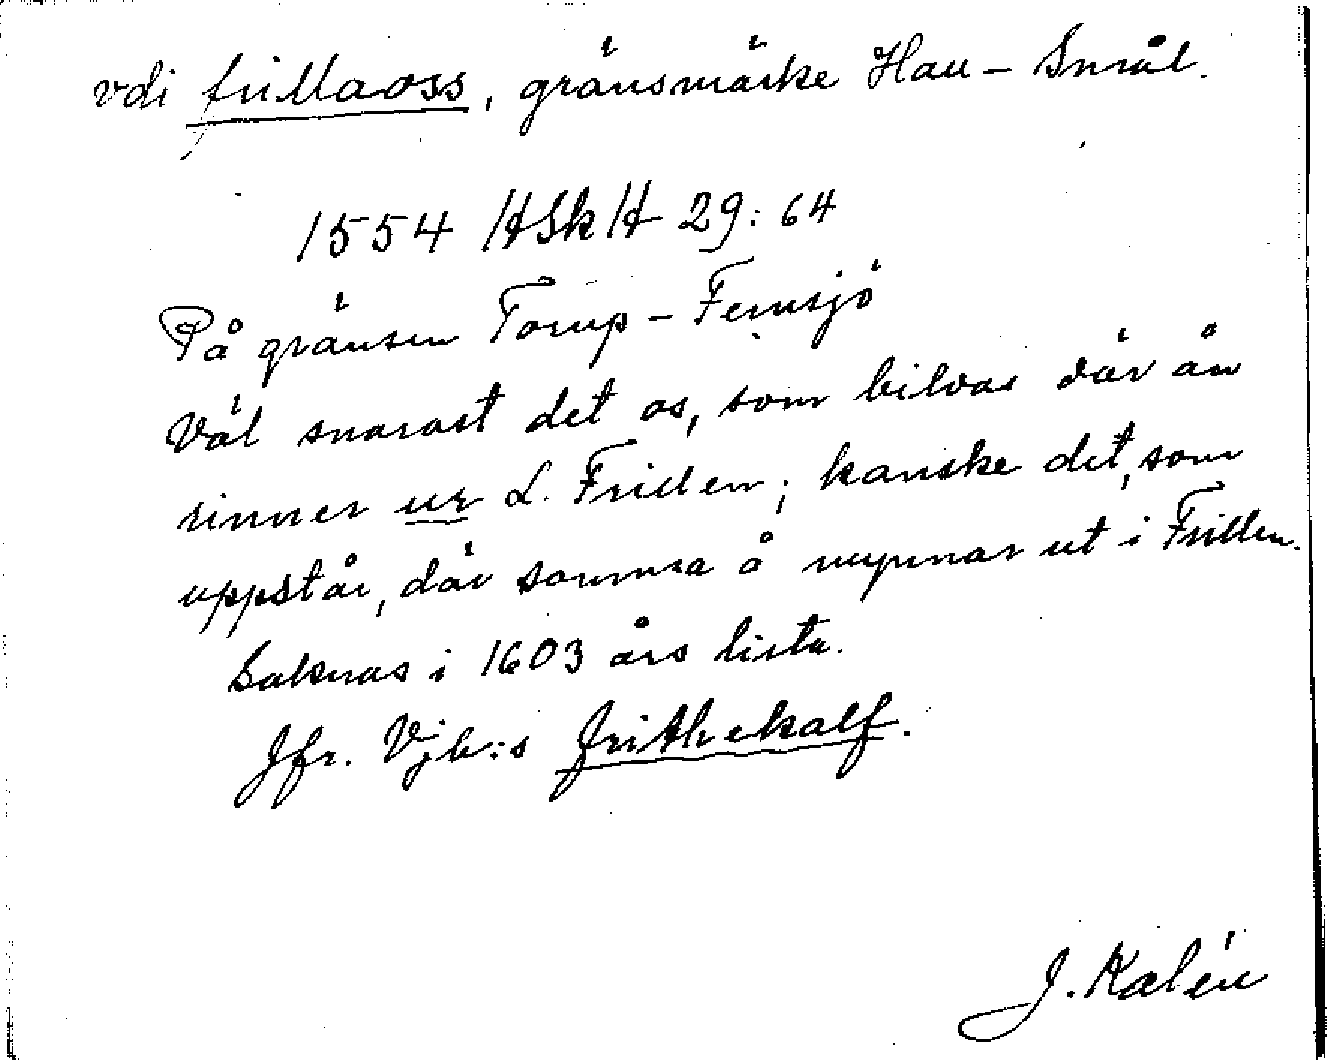 vdi frillaoss, gränsmärke Hall - Smål.
1554 HSkH 29:64
På gränsen Torup - Femsjö
Väl snarast det os, som bildas där ån
rinner ur L. Frillen; kanske det, som
uppstår, där samma å mynnar ut i Frillen.
Saknas i 1603 års lista.
Jfr. Vjb:s frithekalf.
J. Kalén